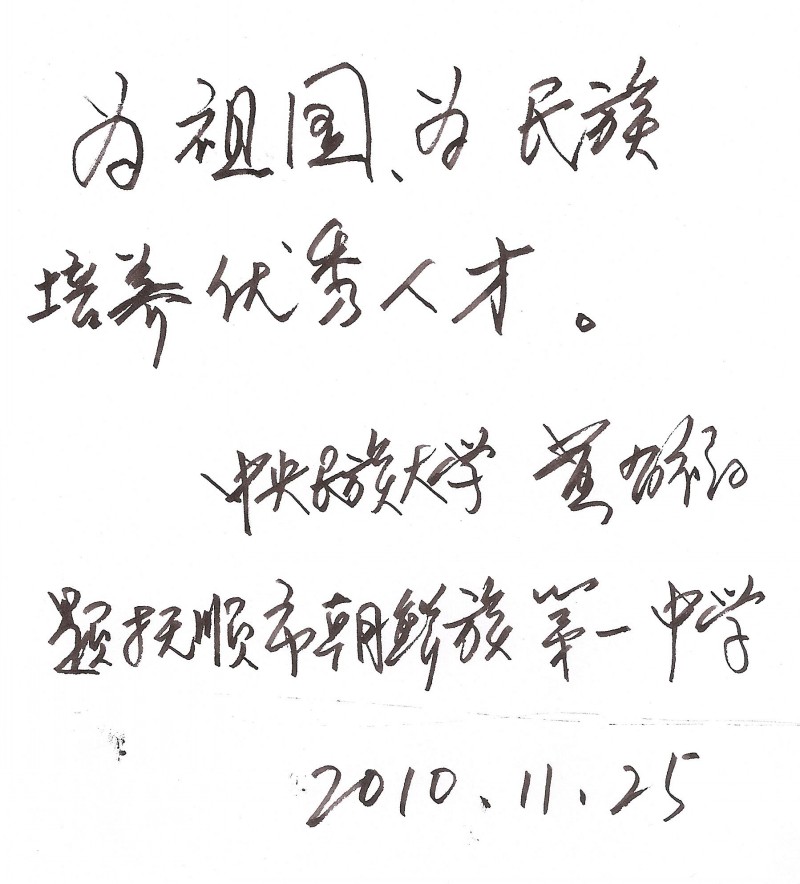 为祖国、为民族
培养优秀人才。
中央民族大学 黄有福
题抚顺市朝鲜族第一中学
2010.11.25